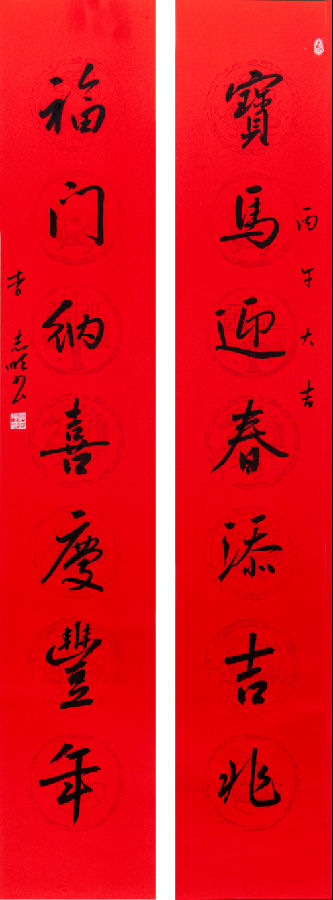 丙午大吉
寶馬迎春添吉兆
福门納喜慶豐年
李志明书